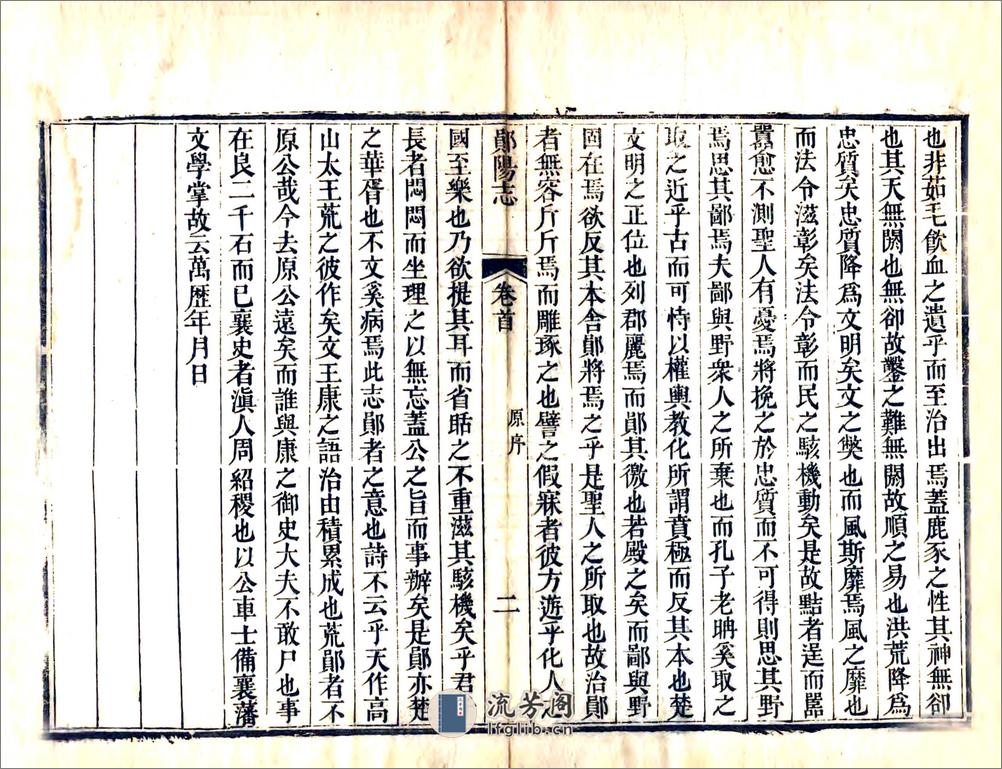 也非茹毛飲血之遺乎而至治出焉蓋鹿豕之性其神無卻
也其天無闕也無卻故鑿之難無闕故順之易也洪荒降爲
忠質矣忠質降爲文明矣文之獘也而風斯靡焉風之靡也
而法令滋彰矣法令彰而民之駭機動矣是故黠者逞而嚚
嚚愈不測聖人有憂焉將挽之於忠質而不可得則思其野
焉思其鄙焉夫鄙與野衆人之所棄也而孔子老聃奚取之
取之近乎古而可恃以權輿教化所謂賁極而反其本也楚
文明之正位也列郡麗焉而鄖其微也若殿之矣而鄙與野
固在焉欲反其本舍鄖將焉之乎是聖人之所取也故治鄖
者無容斤斤焉而雕琢之也譬之假寐者彼方遊乎化人之
鄖陽志 卷首 原序 二
國至樂也乃欲提其耳而省聒之不重滋其駭機矣乎君
長者悶悶而坐理之以無忘蓋公之旨而事辦矣是鄖亦楚
之華胥也不文奚病焉此志鄖者之意也詩不云乎天作高
山太王荒之彼作矣文王康之語治由積累成也荒鄖者不
原公哉今去原公遠矣而誰與康之御史大夫不敢尸也事
在良二千石而已襄史者滇人周紹稷也以公車士備襄藩
文學掌故云萬歷年月日
流芳阁
lfglib.cn